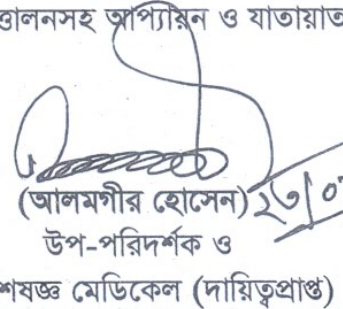 ত্তোলনসহ আপ্যায়ন ও যাতায়াত
(আলমগীর হোসেন) ২৩/০
উপ-পরিদর্শক ও
শেষজ্ঞ মেডিকেল (দায়িত্বপ্রাপ্ত)